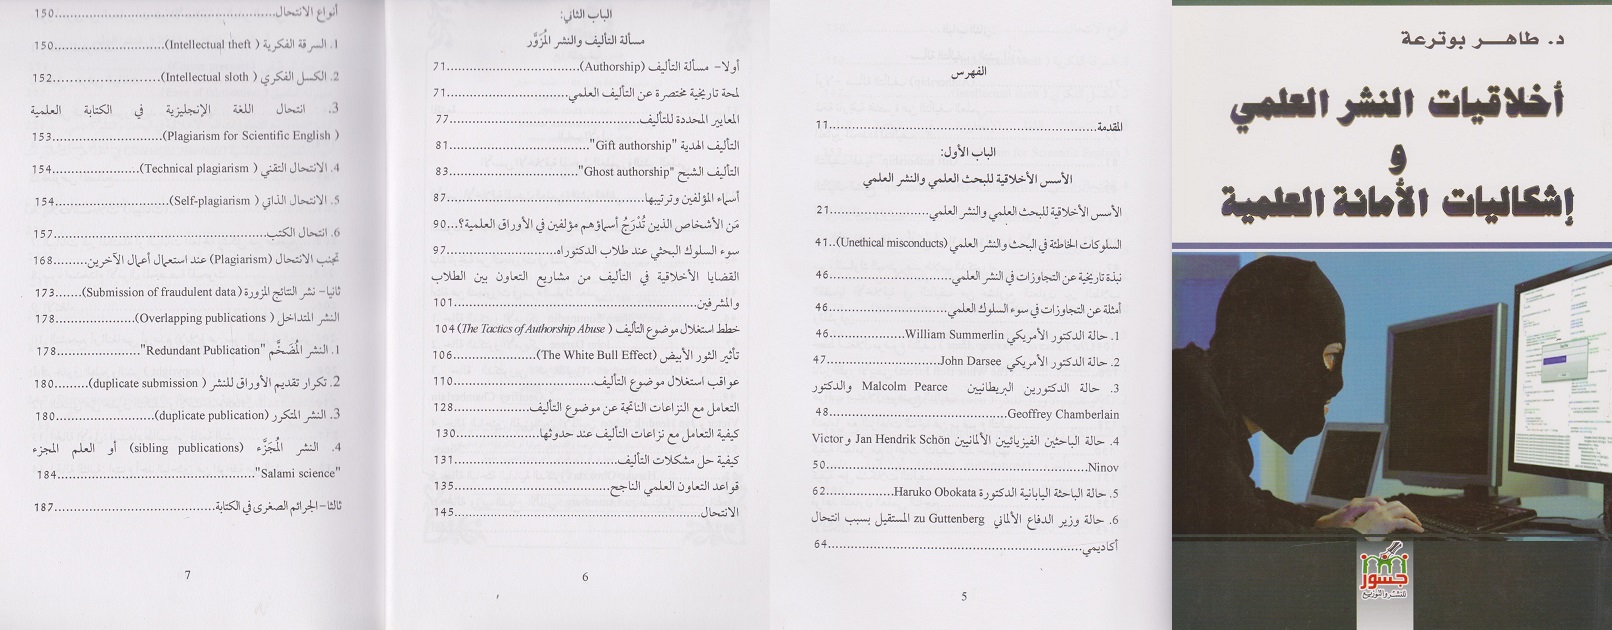 د. طاهر بوترعة
أخلاقيات النشر العلمي
و
إشكاليات الأمانة العلمية
جسور
للنشر والتوزيع
الفهرس
المقدمة...11
الباب الأول:
الأسس الأخلاقية للبحث العلمي والنشر العلمي
الأسس الأخلاقية للبحث العلمي والنشر العلمي...21
السلوكات الخاطئة في البحث والنشر العلمي (Unethical misconducts)...41
نبذة تاريخية عن التجاوزات في النشر العلمي...46
أمثلة عن التجاوزات في سوء السلوك العلمي...46
1. حالة الدكتور الأمريكي William Summerlin...46
2. حالة الدكتور الأمريكي John Darsee...47
3. حالة الدكتورين البريطانيين Malcolm Pearce والدكتور
Geoffrey Chamberlain...48
4. حالة الباحثين الفيزيائيين الألمانيين Jan Hendrik Schön و Victor
Ninov...50
5. حالة الباحثة اليابانية الدكتورة Haruko Obokata...62
6. حالة وزير الدفاع الألماني zu Guttenberg المستقيل بسبب انتحال
أكاديمي...64
5
الباب الثاني:
مسألة التأليف والنشر المُزَوَّر
أولا- مسألة التأليف (Authorship)...71
لمحة تاريخية مختصرة عن التأليف العلمي...71
المعايير المحددة للتأليف...77
التأليف الهدية "Gift authorship"...81
التأليف الشبح "Ghost authorship"...83
أسماء المؤلفين وترتيبها...87
مَن الأشخاص الذين تُدْرَجُ أسماؤهم مؤلفين في الأوراق العلمية؟...90
سوء السلوك البحثي عند طلاب الدكتوراه...97
القضايا الأخلاقية في التأليف من مشاريع التعاون بين الطلاب
والمشرفين...101
خطط استغلال موضوع التأليف (The Tactics of Authorship Abuse )104
تأثير الثور الأبيض (The White Bull Effect)...106
عواقب استغلال موضوع التأليف...110
التعامل مع النزاعات الناتجة عن موضوع التأليف...128
كيفية التعامل مع نزاعات التأليف عند حدوثها...130
كيفية حل مشكلات التأليف...131
قواعد التعاون العلمي الناجح...135
الانتحال...145
6
أنواع الانتحال...150
1. السرقة الفكرية (Intellectual theft )...150
2. الكسل الفكري (Intellectual sloth )...152
3. انتحال اللغة الإنجليزية في الكتابة العلمية
(Plagiarism for Scientific English )...153
4. الانتحال التقني (Technical plagiarism )...154
5. الانتحال الذاتي (Self-plagiarism )...154
6. انتحال الكتب...157
تجنب الانتحال (Plagiarism) عند استعمال أعمال الآخرين...168
ثانيا- نشر النتائج المزورة (Submission of fraudulent data)...173
النشر المتداخل (Overlapping publications )...178
1. النشر المُضَخَّم "Redundant Publication"...178
2. تكرار تقديم الأوراق للنشر (duplicate submission )...180
3. النشر المتكرر (duplicate publication)...180
4. النشر المُجَزَّء (sibling publications) أو العلم المجزء
"Salami science"...184
ثالثا- الجرائم الصغرى في الكتابة...187
7